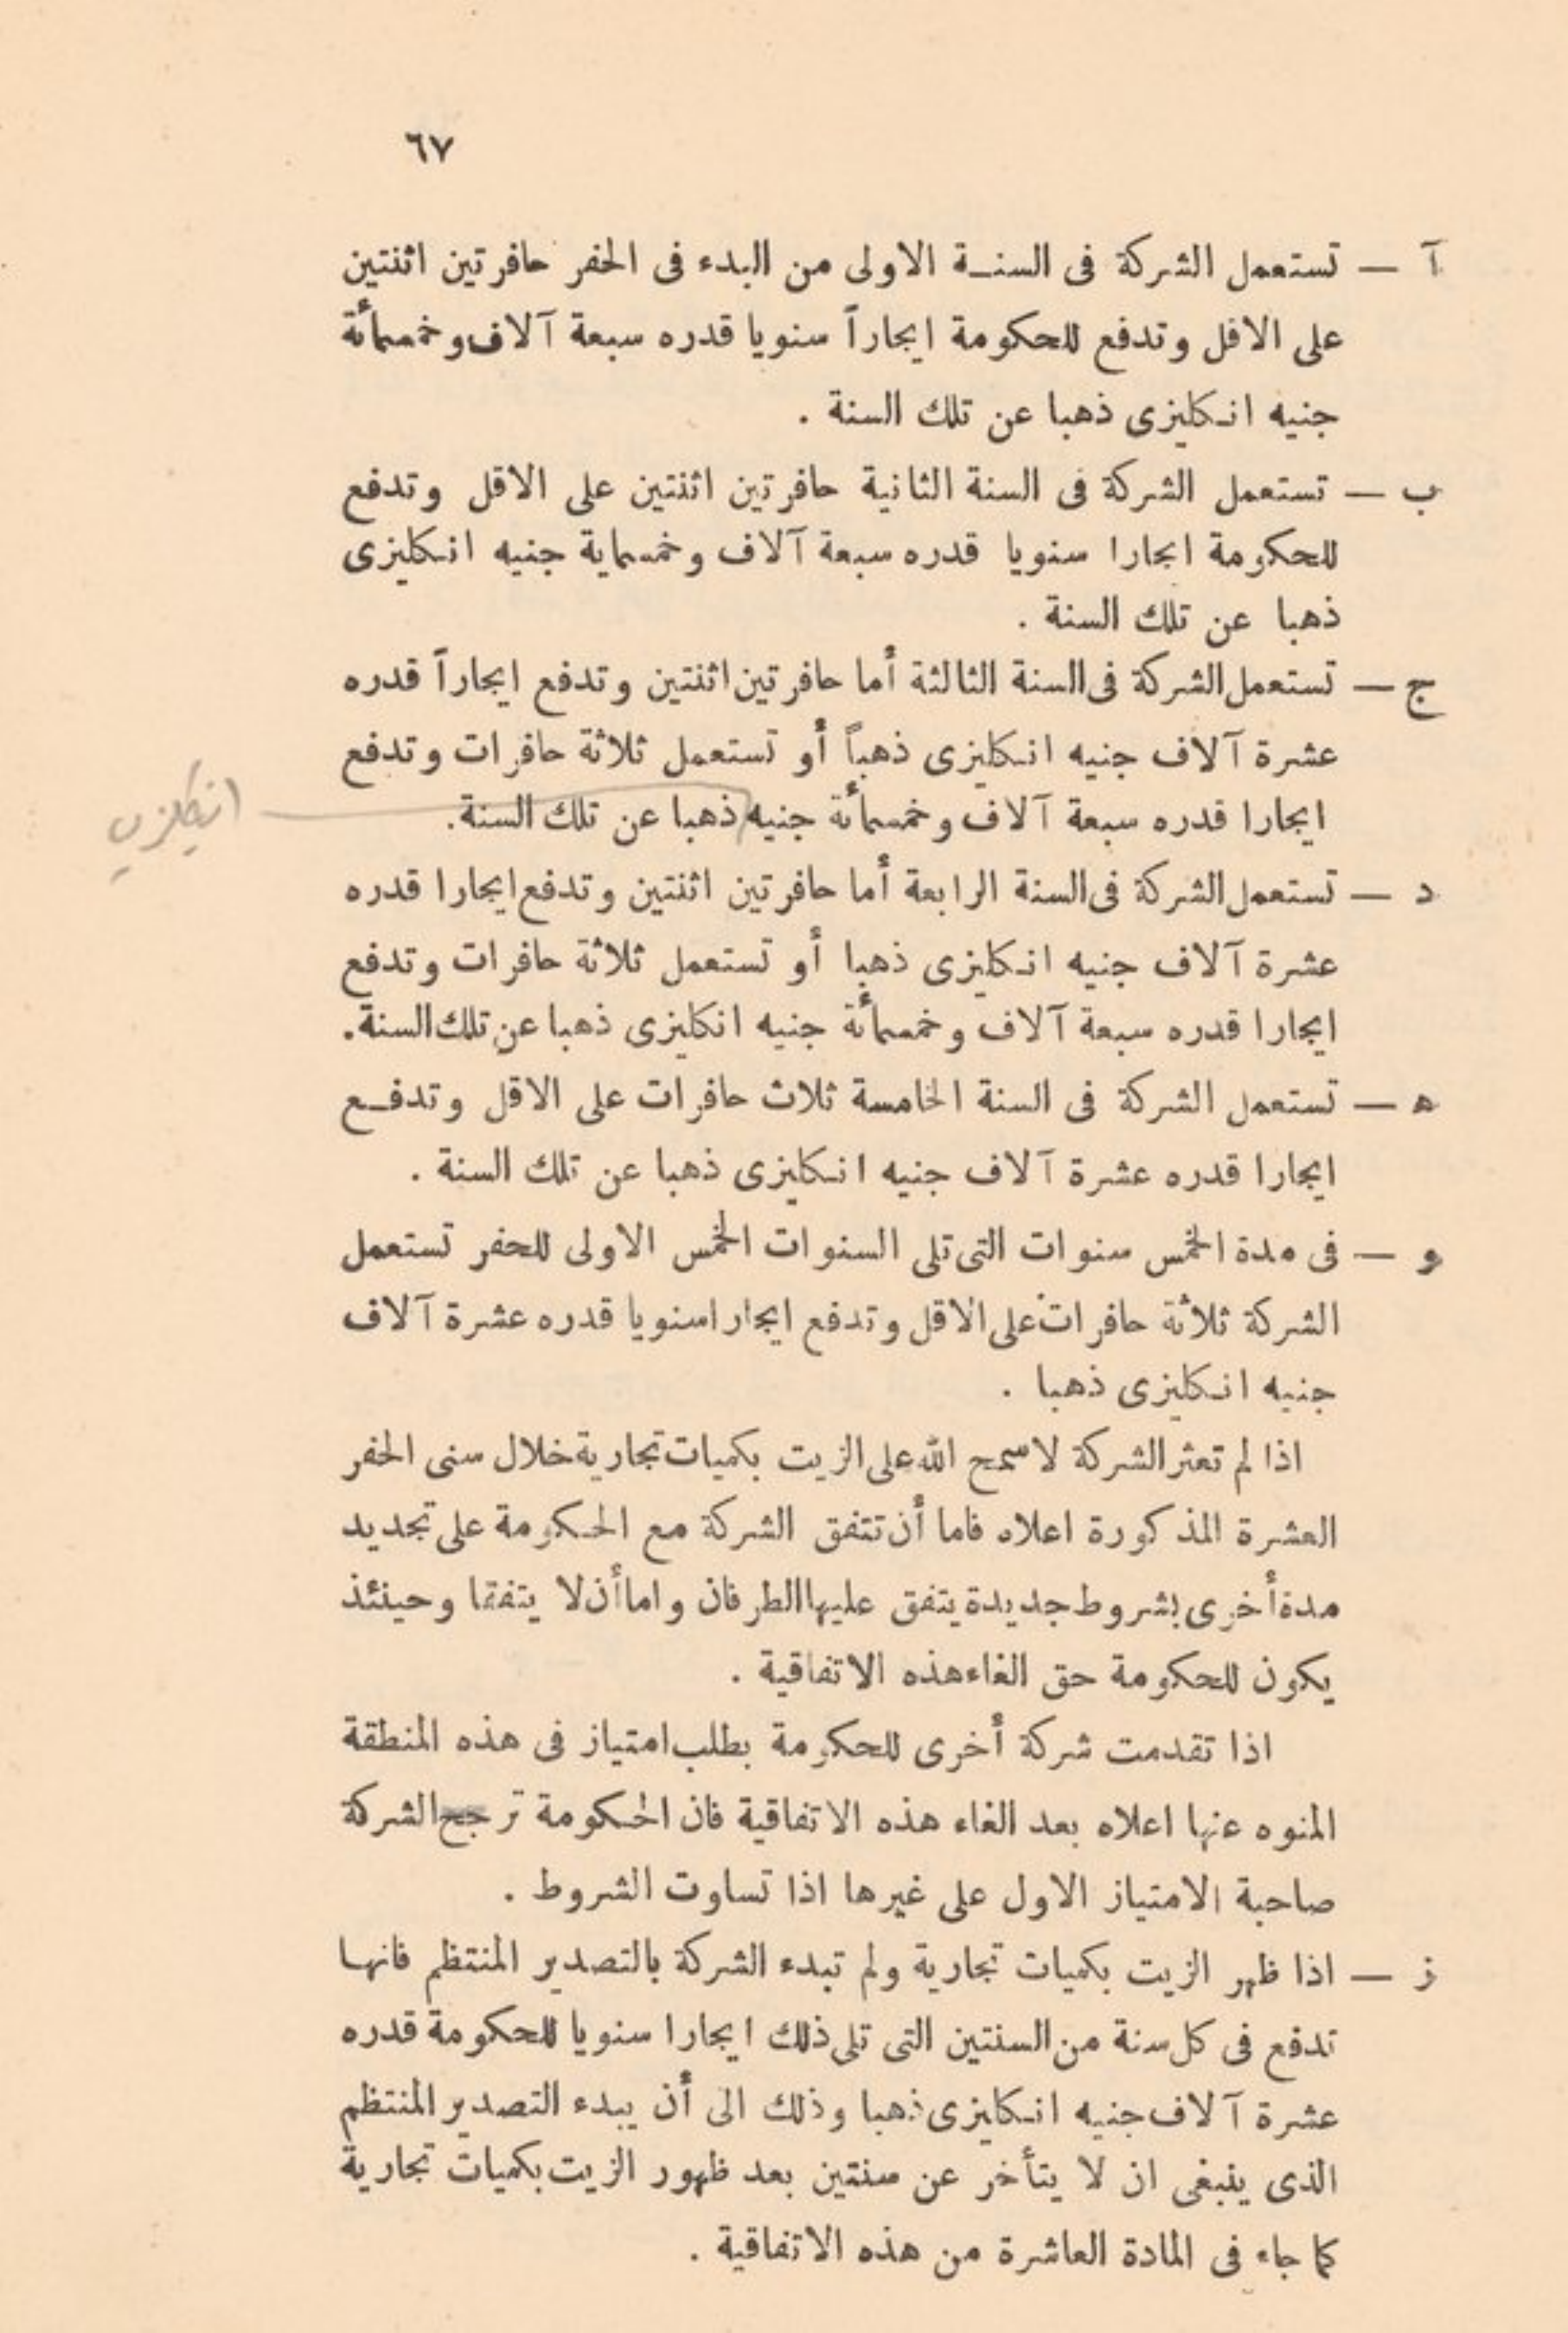 ٦٧
آ — تستعمل الشركة فى السنة الاولى من البدء فى الحفر حافرتين اثنتين
على الاقل وتدفع للحكومة ايجاراً سنويا قدره سبعة آلاف وخمسمأئة
جنيه انكليزى ذهبا عن تلك السنة .
ب — تستعمل الشركة فى السنة الثانية حافرتين اثنتين على الاقل وتدفع
للحكومة ايجارا سنويا قدره سبعة آلاف وخمسماية جنيه انكليزى
ذهبا عن تلك السنة .
ج — تستعمل الشركة فى السنة الثالثة أما حافرتين اثنتين وتدفع ايجاراً قدره
عشرة آلاف جنيه انكليزى ذهباً أو تستعمل ثلاثة حافرات وتدفع
ايجارا قدره سبعة آلاف وخمسمأئة جنيه ذهبا عن تلك السنة.
انكليزي
د — تستعمل الشركة فى السنة الرابعة أما حافرتين اثنتين وتدفع ايجارا قدره
عشرة آلاف جنيه انكليزى ذهبا أو تستعمل ثلاثة حافرات وتدفع
ايجارا قدره سبعة آلاف وخمسمأئة جنيه انكليزى ذهبا عن تلك السنة.
ه — تستعمل الشركة فى السنة الخامسة ثلاث حافرات على الاقل وتدفع
ايجارا قدره عشرة آلاف جنيه انكليزى ذهبا عن تلك السنة .
و — فى مدة الخمس سنوات التى تلى السنوات الخمس الاولى للحفر تستعمل
الشركة ثلاثة حافرات على الاقل وتدفع ايجارا سنويا قدره عشرة آلاف
جنيه انكليزى ذهبا .
اذا لم تعثر الشركة لا سمح الله على الزيت بكميات تجارية خلال سنى الحفر
العشرة المذكورة اعلاه فاما أن تتفق الشركة مع الحكومة على تجديد
مدة أخرى بشروط جديدة يتفق عليها الطرفان واما أن لا يتفقا وحينئذ
يكون للحكومة حق الغاء هذه الاتفاقية .
اذا تقدمت شركة أخرى للحكومة بطلب امتياز فى هذه المنطقة
المنوه عنها اعلاه بعد الغاء هذه الاتفاقية فان الحكومة ترجح الشركة
صاحبة الامتياز الاول على غيرها اذا تساوت الشروط .
ز — اذا ظهر الزيت بكميات تجارية ولم تبدء الشركة بالتصدير المنتظم فانها
تدفع فى كل سنة من السنتين التى تلى ذلك ايجارا سنويا للحكومة قدره
عشرة آلاف جنيه انكليزى ذهبا وذلك الى أن يبدء التصدير المنتظم
الذى ينبغى ان لا يتأخر عن سنتين بعد ظهور الزيت بكميات تجارية
كما جاء فى المادة العاشرة من هذه الاتفاقية .